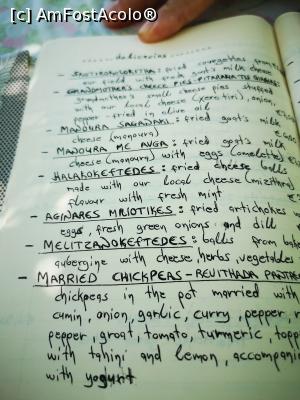 [c] AmFostAcolo®
delicacies
- KOLOKITHA: fried courgettes from
our field with fresh goat's milk cheese
GRANDMOTHER'S CHEESE PIES
grandmother's small cheese pies stuffed
with our local cheese (xerotiri), onion,
pepper - fried in olive oil
- MANOURA SAGANAKI: fried goat's milk
cheese (manoura)
- MANOURA ME AVGA: fried goat's milk
cheese (manoura) with eggs (omelette)
- HALAKOKEFTEDES: fried cheese balls
made with our local cheese
flavour with fresh mint
- AGINARES MRIOTIKES: fried artichokes
eggs, fresh green onions and dill
- MELITZANOKEFTEDES: balls from
aubergine with cheese, herbs, vegetables
- MARRIED CHICKPEAS - REVITHADA
chickpeas in the pot married with
cumin, onion, garlic, curry, pepper,
pepper, groat, tomato, turmeric,
with tahini and lemon,
with yogurt